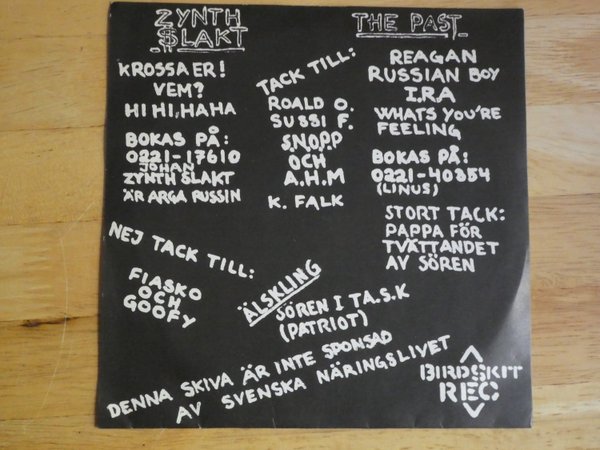 ZYNTH
SLAKT
KROSSA ER!
VEM?
HI HI, HAHA
BOKAS PÅ:
0221-17610
JOHAN
ZYNTH SLAKT
ÄR ARGA RUSSIN
TACK TILL:
ROALD O.
SUSSI F.
S.N.O.P.P
OCH
A.H.M
K. FALK
THE PAST
REAGAN
RUSSIAN BOY
I.R.A
WHATS YOU'RE
FEELING
BOKAS PÅ:
0221-40354
(LINUS)
STORT TACK:
PAPPA FÖR
TVÄTTANDET
AV SÖREN
NEJ TACK TILL:
FIASKO
OCH
GOOFY
ÄLSKLING
SÖREN I T.A.S.K
(PATRIOT)
DENNA SKIVA ÄR INTE SPONSAD
AV SVENSKA NÄRINGSLIVET
BIRDSKIT
REC